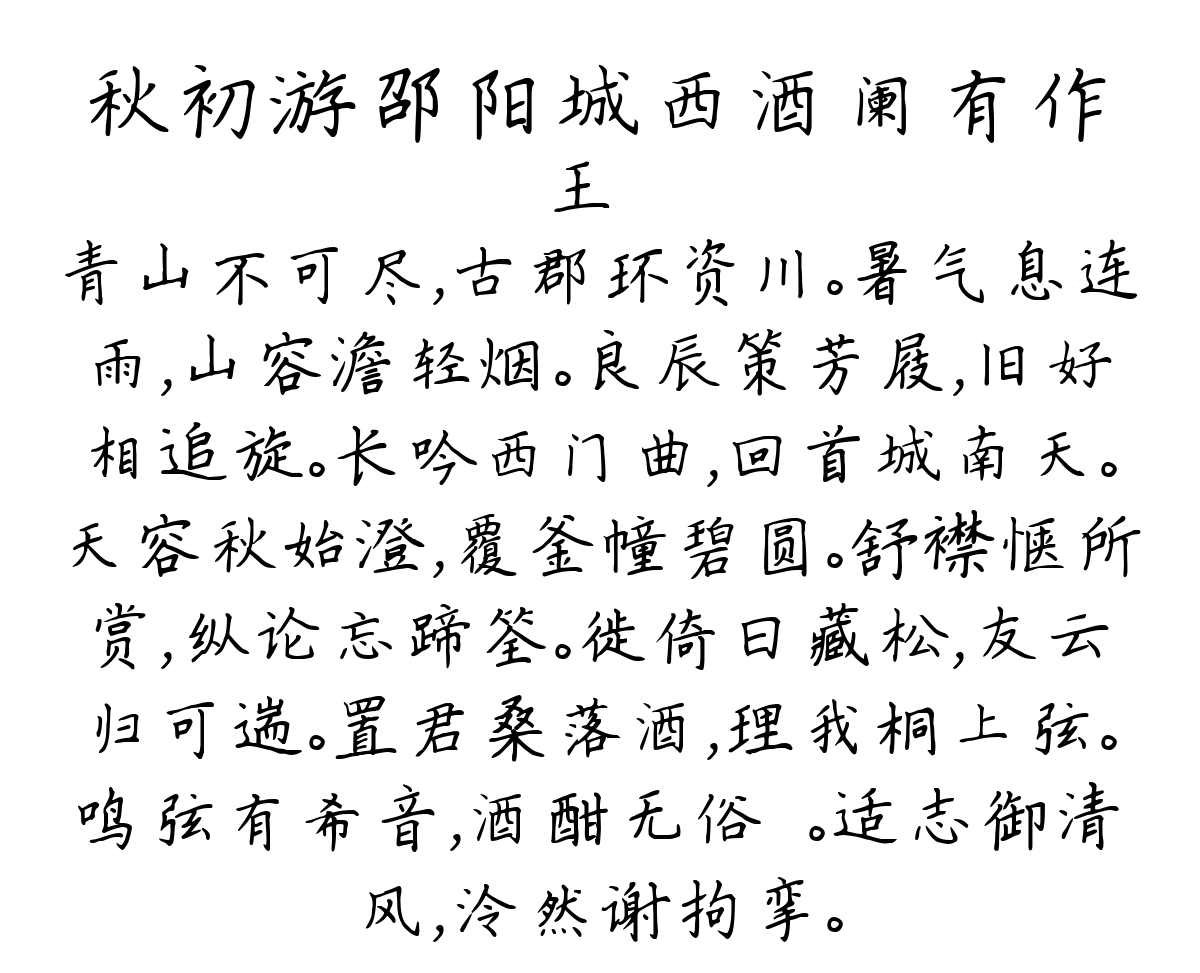 秋初游邵阳城西酒阑有作
王
青山不可尽,古郡环资川。暑气息连
雨,山容澹轻烟。良辰策芳屐,旧好
相追旋。长吟西门曲,回首城南天。
天容秋始澄,覆釜幢碧圆。舒襟惬所
赏,纵论忘蹄筌。徙倚日藏松,友云
归可遄。置君桑落酒,理我桐上弦。
鸣弦有希音,酒酣无俗 。适志御清
风,泠然谢拘挛。